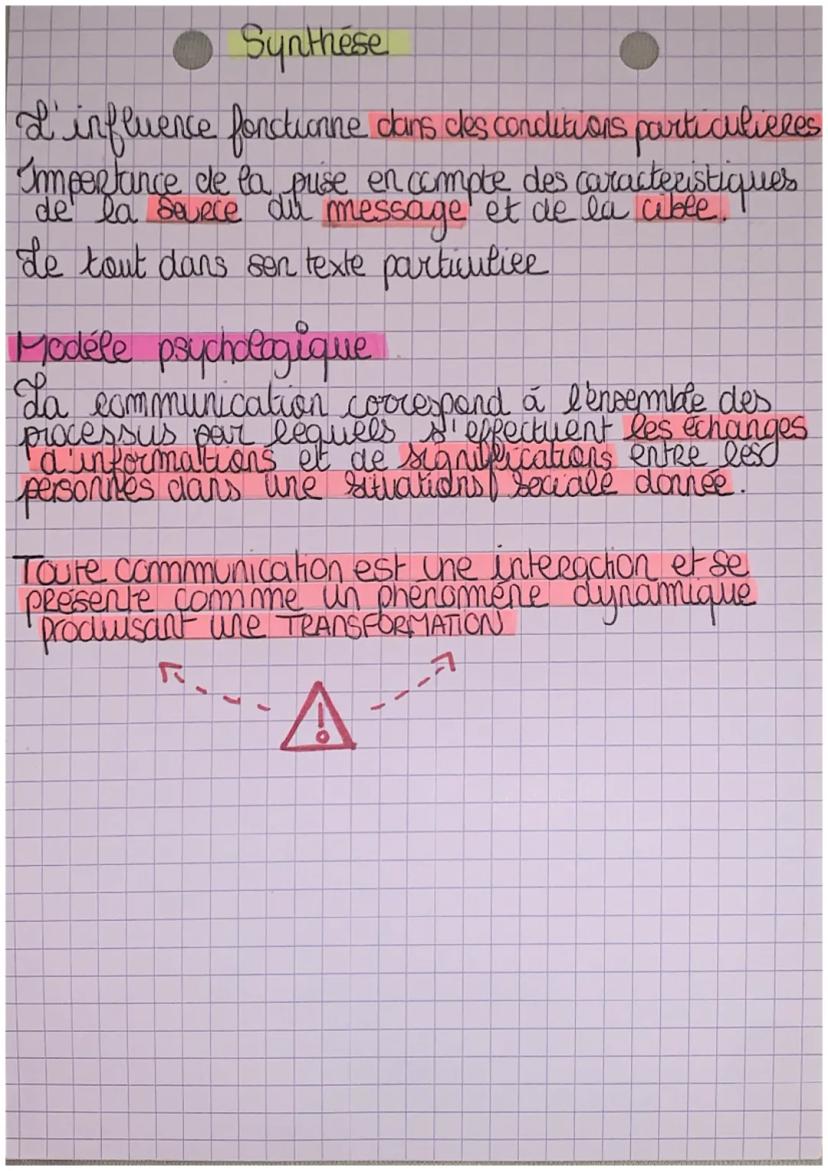 Synthése
L'influence fonctionne dans des conditions particulieres
Importance de la prise en compte des caracteristiques
de la source du message et de la cible.
Le tout dans son texte particulier
Modéle psychologique
La communication correspond à l'ensemble des
processus par lequels s'effectuent les échanges
d'informations et de significations entre les
personnes dans une situations sociale donnée.
Toute communication est une interaction et se
présente comme un phénomène dynamique
produisant une TRANSFORMATION
!